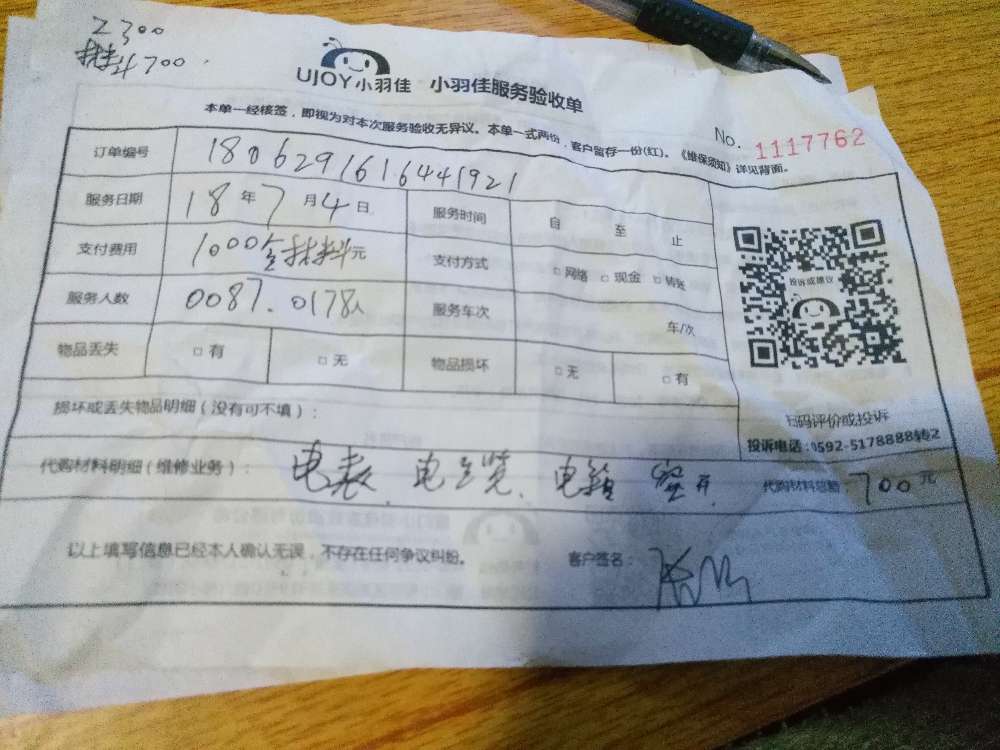 2300
材料700.
UJOY小羽佳 小羽佳服务验收单
本单一经核签，即视为对本次服务验收无异议。本单一式两份，客户留存一份(红)。《维保须知》详见背面。
No. 1117762
订单编号 1806291616441921
服务日期 18年7月4日 服务时间 自 至 止
支付费用 1000含材料元 支付方式 □网络 □现金 □转账
服务人数 0087.0178人 服务车次 车/次
物品丢失 □有 □无 物品损坏 □无 □有
投诉或建议
扫码评价或投诉
投诉电话:0592-5178888转2
损坏或丢失物品明细（没有可不填）：
代购材料明细（维修业务）： 电表、电缆、电箱 空开 代购材料总额 700元
以上填写信息已经本人确认无误，不存在任何争议纠纷。 客户签名：